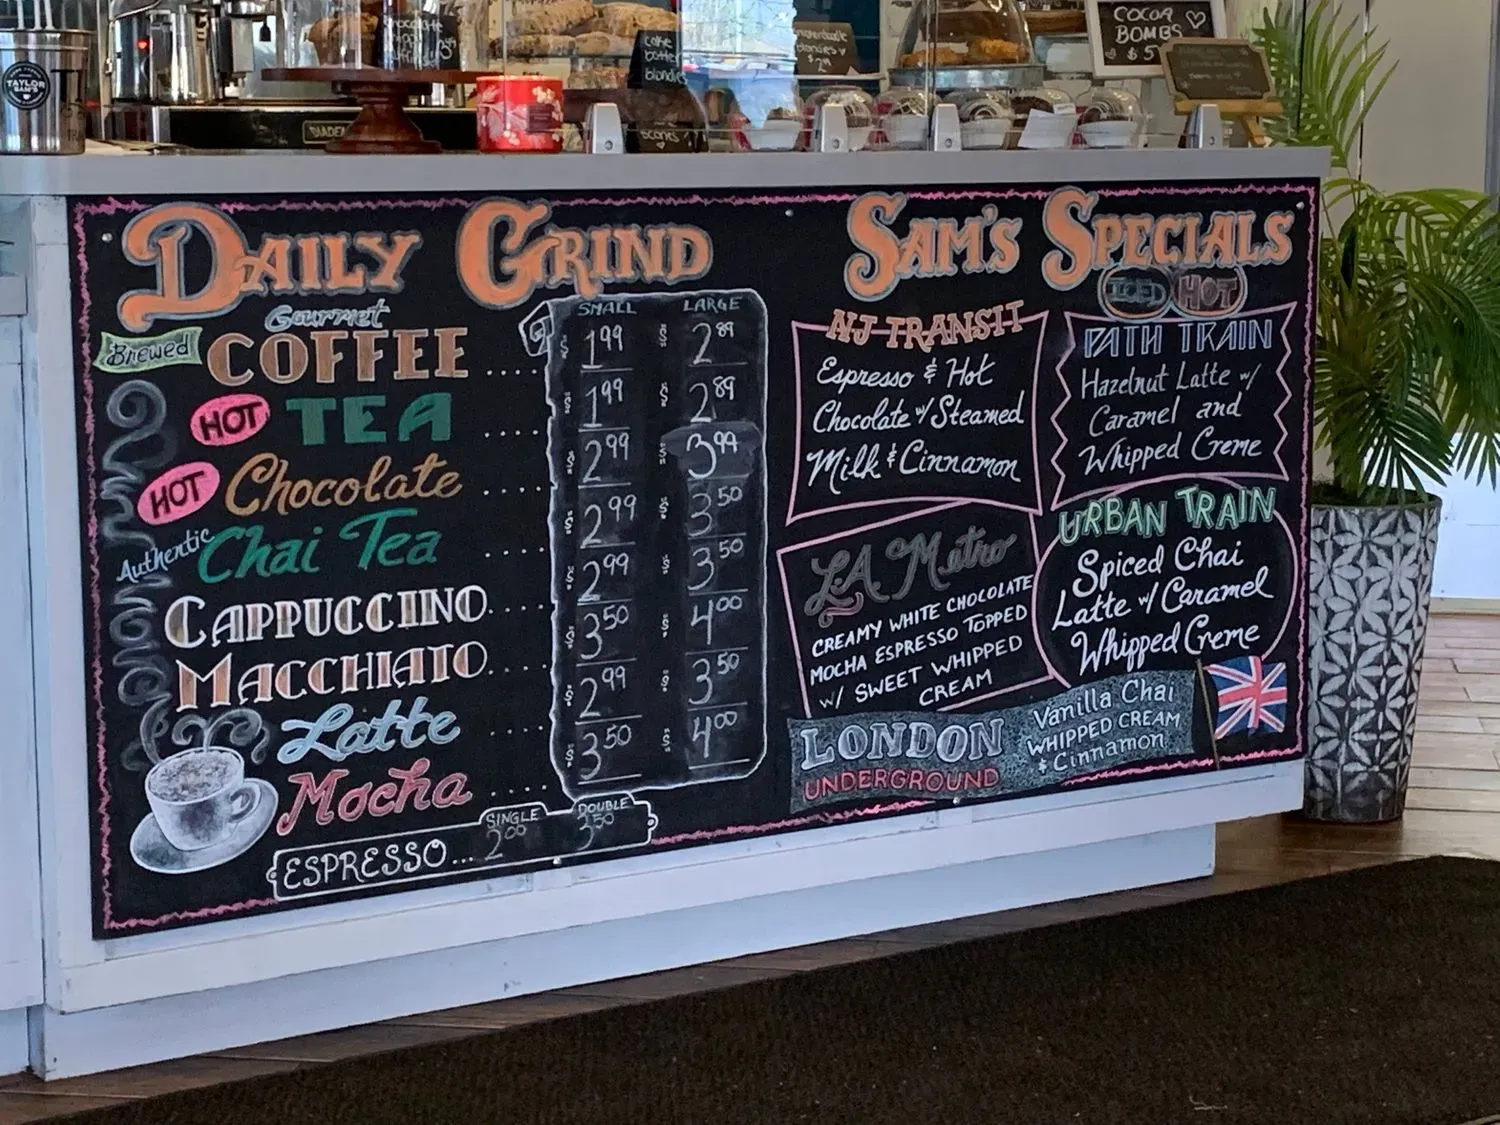 TAYLOR
SAM'S
chocolate
cake
batter
blondies
scones
blondies
COCOA
BOMBS
$5
DIADEMA
DAILY GRIND
Gourmet
Brewed COFFEE ....
HOT TEA ....
HOT Chocolate ....
Authentic Chai Tea ....
CAPPUCCINO ....
MACCHIATO ....
Latte ....
Mocha ....
SMALL LARGE
$ 1.99 $ 2.89
$ 1.99 $ 2.89
$ 2.99 $ 3.99
$ 2.99 $ 3.50
$ 2.99 $ 3.50
$ 3.50 $ 4.00
$ 2.99 $ 3.50
$ 3.50 $ 4.00
SINGLE DOUBLE
ESPRESSO... 2.00 3.50
SAM'S SPECIALS
ICED HOT
NJ TRANSIT
Espresso & Hot
Chocolate w/ Steamed
Milk & Cinnamon
PATH TRAIN
Hazelnut Latte w/
Caramel and
Whipped Creme
LA Metro
CREAMY WHITE CHOCOLATE
MOCHA ESPRESSO TOPPED
w/ SWEET WHIPPED
CREAM
URBAN TRAIN
Spiced Chai
Latte w/ Caramel
Whipped Creme
LONDON
UNDERGROUND
Vanilla Chai
WHIPPED CREAM
& Cinnamon